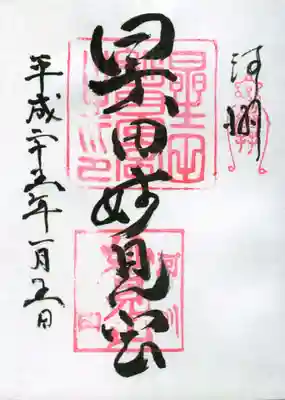 河州
星田妙見宮
平成二十五年一月五日